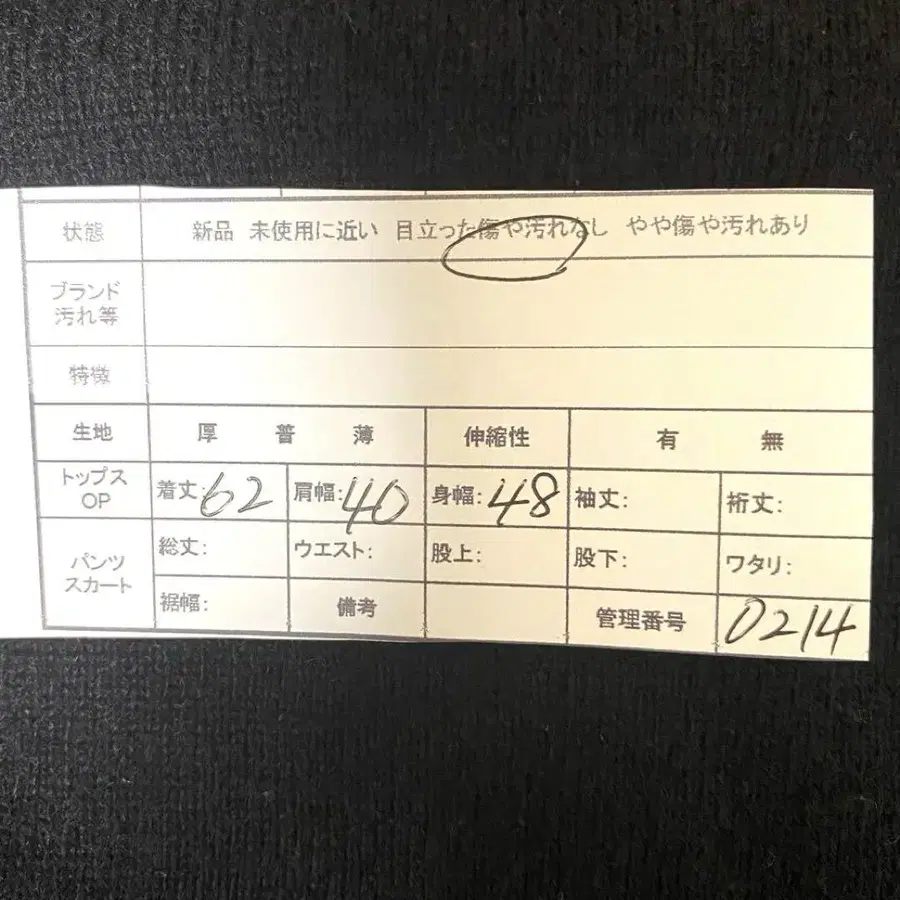 状態 新品 未使用に近い 目立った傷や汚れなし やや傷や汚れあり
ブランド
汚れ等
特徴
生地 厚 普 薄 伸縮性 有 無
トップス
OP
着丈:62 肩幅:40 身幅:48 袖丈: 裄丈:
パンツ
スカート
総丈: ウエスト: 股上: 股下: ワタリ:
裾幅: 備考 管理番号 0214